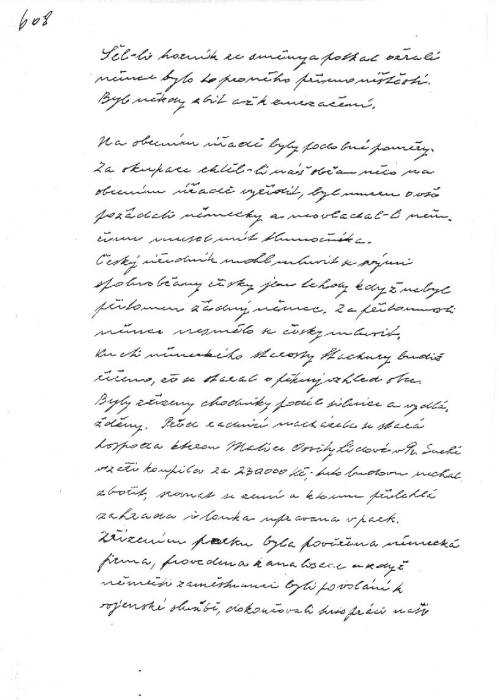 608
Šel-li horník ze směny a potkal ožralé
němce bylo to pro něho přímo neštěstí.
Byl někdy zbit až k zmrzačení.
Na obecním úřadě byly podobné poměry.
Za okupace chtěl-li náš občan něco na
obecním úřadě vyřídit, byl nucen o vše
požádati německy a neovládal-li něm-
činu musel mít tlumočníka.
Český úředník mohl mluvit se svými
spoluobčany česky jen tehdy když nebyl
přítomen žádný němec. Za přítomnosti
němce nesmělo se česky mluvit.
Ku cti německého starosty Stachury budiž
řečeno, že se staral o pěkný vzhled obce.
Byly zřízeny chodníky podél silnice a vydlá-
žděny. Před radnicí nacházela se stará
hospoda kterou Matice Osvěty Lidové v P. Suché
vzatí koupila za 230000 Kč; tuto budovu nechal
zbořit, srovnat se zemí a k tomu přilehlá
zahrada i louka upravena v park.
Zřízením parku byla pověřena německá
firma, provedena kanalisace a když
němečtí zaměstnanci byli povoláni k
vojenské službě, dokončovali tuto práci naši